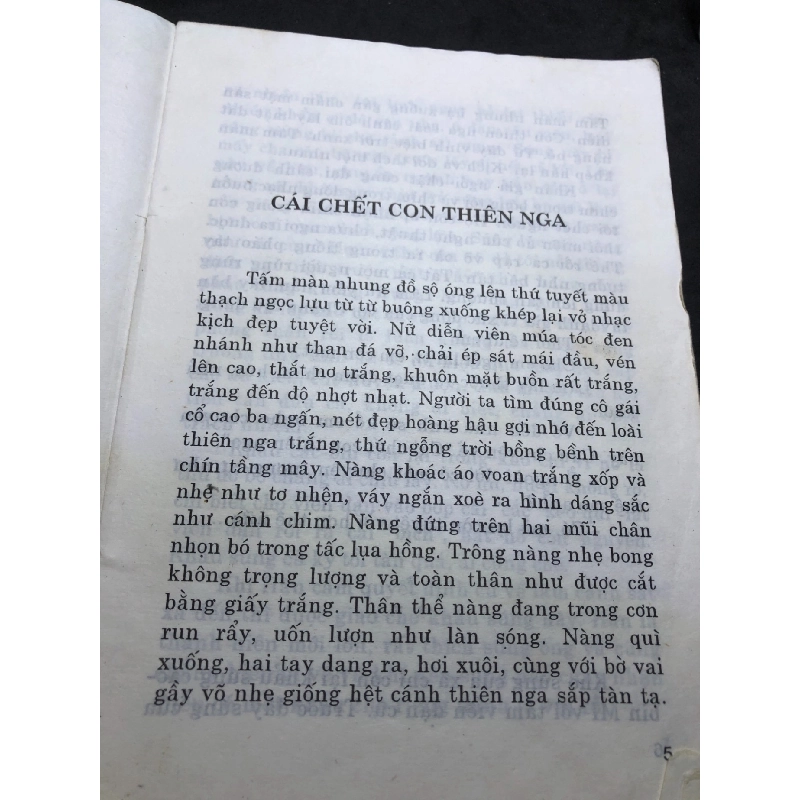 CÁI CHẾT CON THIÊN NGA
Tấm màn nhung đồ sộ óng lên thứ tuyết màu
thạch ngọc lựu từ từ buông xuống khép lại vở nhạc
kịch đẹp tuyệt vời. Nữ diễn viên múa tóc đen
nhánh như than đá vỡ, chải ép sát mái đầu, vén
lên cao, thắt nơ trắng, khuôn mặt buồn rất trắng,
trắng đến độ nhợt nhạt. Người ta tìm đúng cô gái
cổ cao ba ngấn, nét đẹp hoàng hậu gợi nhớ đến loài
thiên nga trắng, thứ ngỗng trời bồng bềnh trên
chín tầng mây. Nàng khoác áo voan trắng xốp và
nhẹ như tơ nhện, váy ngắn xoè ra hình dáng sắc
như cánh chim. Nàng đứng trên hai mũi chân
nhọn bó trong tấc lụa hồng. Trông nàng nhẹ bong
không trọng lượng và toàn thân như được cắt
bằng giấy trắng. Thân thể nàng đang trong cơn
run rẩy, uốn lượn như làn sóng. Nàng quì
xuống, hai tay dang ra, hơi xuôi, cùng với bờ vai
gầy võ nhẹ giống hệt cánh thiên nga sắp tàn tạ.
5